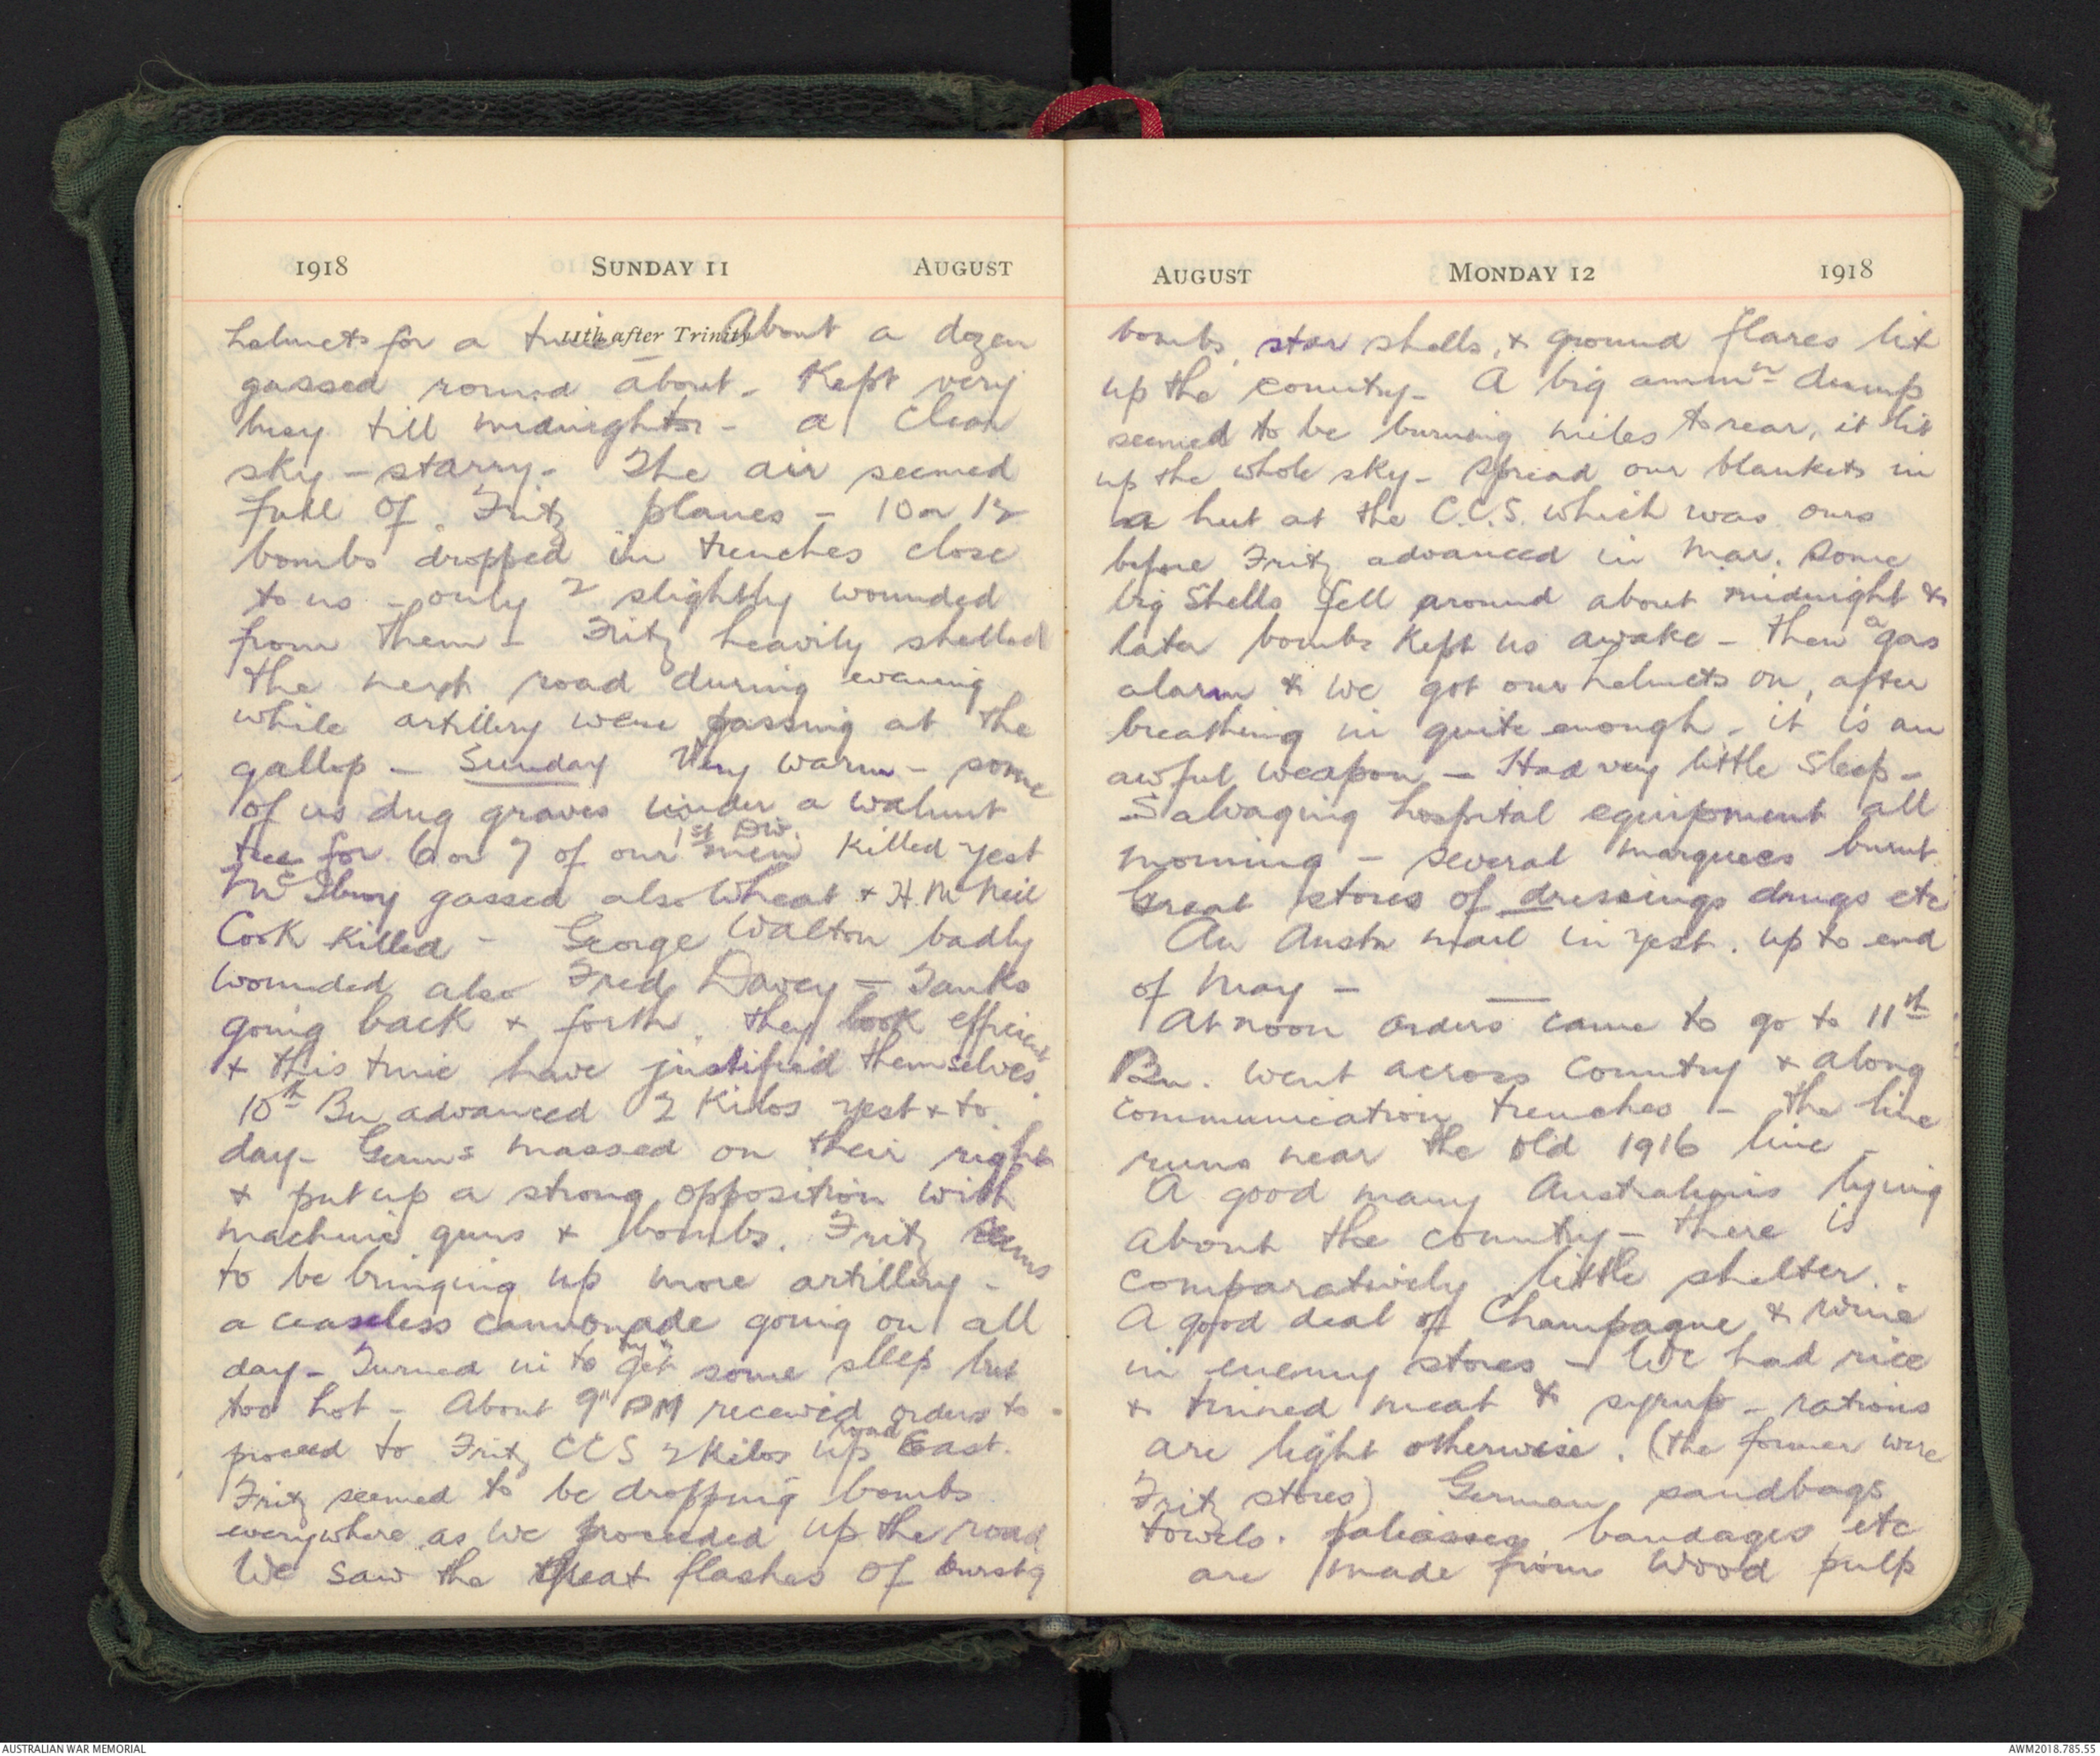 1918 SUNDAY 11 AUGUST
11th after Trinity
helmets for a time - About a dozen
gassed round about - Kept very
busy till midnight - a clear
sky - starry - The air seemed
full of Fritz planes - 10 or 12
bombs dropped in trenches close
to us - only 2 slightly wounded
from them - Fritz heavily shelled
the next road during evening
while artillery were passing at the
gallop - Sunday Very warm - some
of us dug graves under a walnut
tree for 6 or 7 of our 1st Div. men killed yest
gassed also Wheat & H. McNeil
Cook killed - George Walton badly
wounded also Fred Davey - Tanks
going back & forth, they look efficient
& this time have justified themselves.
10th Bn advanced 2 Kilos yest & to
day - Germs massed on their right
& put up a strong opposition with
machine guns & bombs. Fritz seems
to be bringing up more artillery -
a ceaseless cannonade going on all
day - Turned in to try & get some sleep but
too hot - About 9 PM received orders to
proceed to Fritz CCS 2 Kilos up road East.
Fritz seemed to be dropping bombs
everywhere as we proceeded up the road
We saw the great flashes of burstg
AUGUST MONDAY 12 1918
bombs, star shells, & ground flares lit
up the country - A big ammn dump
seemed to be burning miles to rear, it lit
up the whole sky - Spread our blankets in
a hut at the C.C.S. which was ours
before Fritz advanced in Mar. Some
big shells fell around about midnight &
later bombs kept us awake - then a gas
alarm & we got our helmets on, after
breathing in quite enough - it is an
awful weapon - Had very little sleep -
Salvaging hospital equipment all
morning - several marquees burnt
Great stores of dressings drugs etc
An Austn mail in yest. up to end
of May -
At noon orders came to go to 11th
Bn. went across country & along
communication trenches - the line
runs near the old 1916 line -
A good many Australians lying
about the country - there is
comparatively little shelter.
A good deal of Champagne & wine
in enemy stores - We had rice
& tinned meat & syrup - rations
are light otherwise. (the former were
Fritz stores) German sandbags
towels. paliasses bandages etc
are made from wood pulp
AUSTRALIAN WAR MEMORIAL
AWM2018.785.55